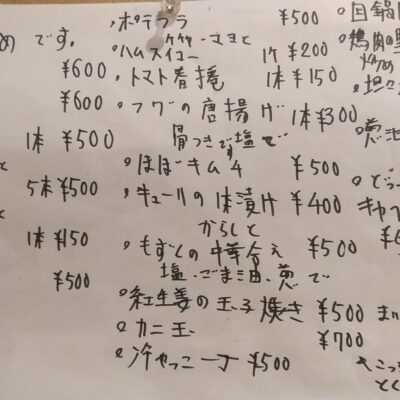 め です。
¥600
¥600
1本 ¥500
5本 ¥500
1本 ¥150
¥500
ポテフラ ¥500
ケチャ・マヨと
ハム 1ケ ¥200
トマト春捲 1本 ¥150
フグーの唐揚げ 1本 ¥300
骨つきです塩で
ほぼキムチ ¥500
キューリの1本漬け ¥400
からしと
もずくの中華合え ¥500
塩・ごま油・葱で
紅生姜の玉子焼き ¥500
カニ玉 ¥700
冷やっこ一丁 ¥500
回鍋
鶏肉の
炒め
坦々
キャベ
¥6